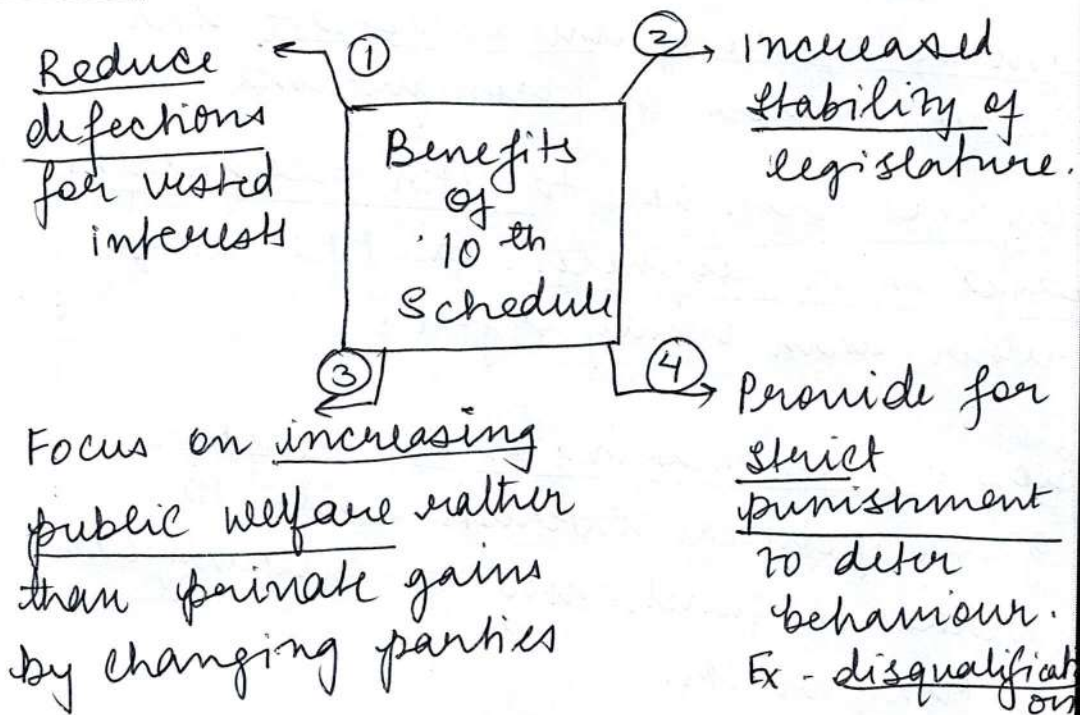 Benefits
of
10th
Schedule
①
Reduce
defections
for vested
interests
②
Increased
stability of
legislature.
③
Focus on increasing
public welfare rather
than private gains
by changing parties
④
Provide for
strict
punishment
to deter
behaviour.
Ex - disqualificati
on